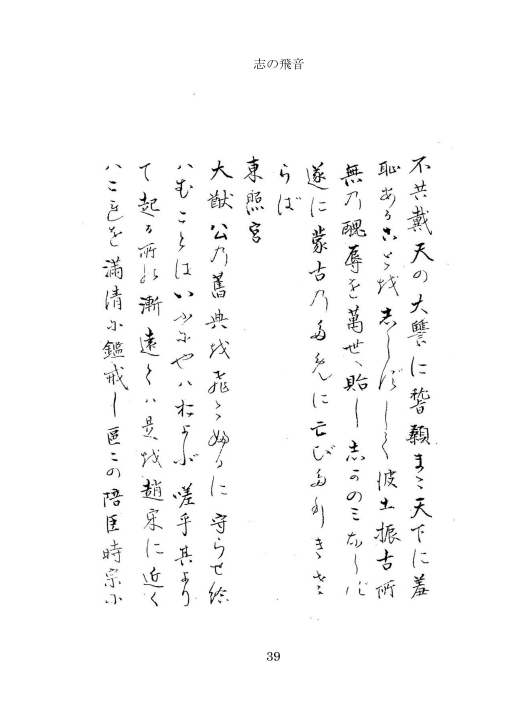 志の飛音
不共戴天の大讐に稽顙まこ天下に羞
恥あることを志らずして彼土振古所
無乃醜辱を萬世へ貽し志かのミならず
遂に蒙古乃ために亡びたりきさ
らば
東照宮
大猷公乃舊典を飛とへに守らせ給
はむことはいふにや及ぶ嗟乎其より
て起る所の漸遠くハ是を趙宋に近く
ハこれを満清に鑑戒し区この陪臣時宗に
39